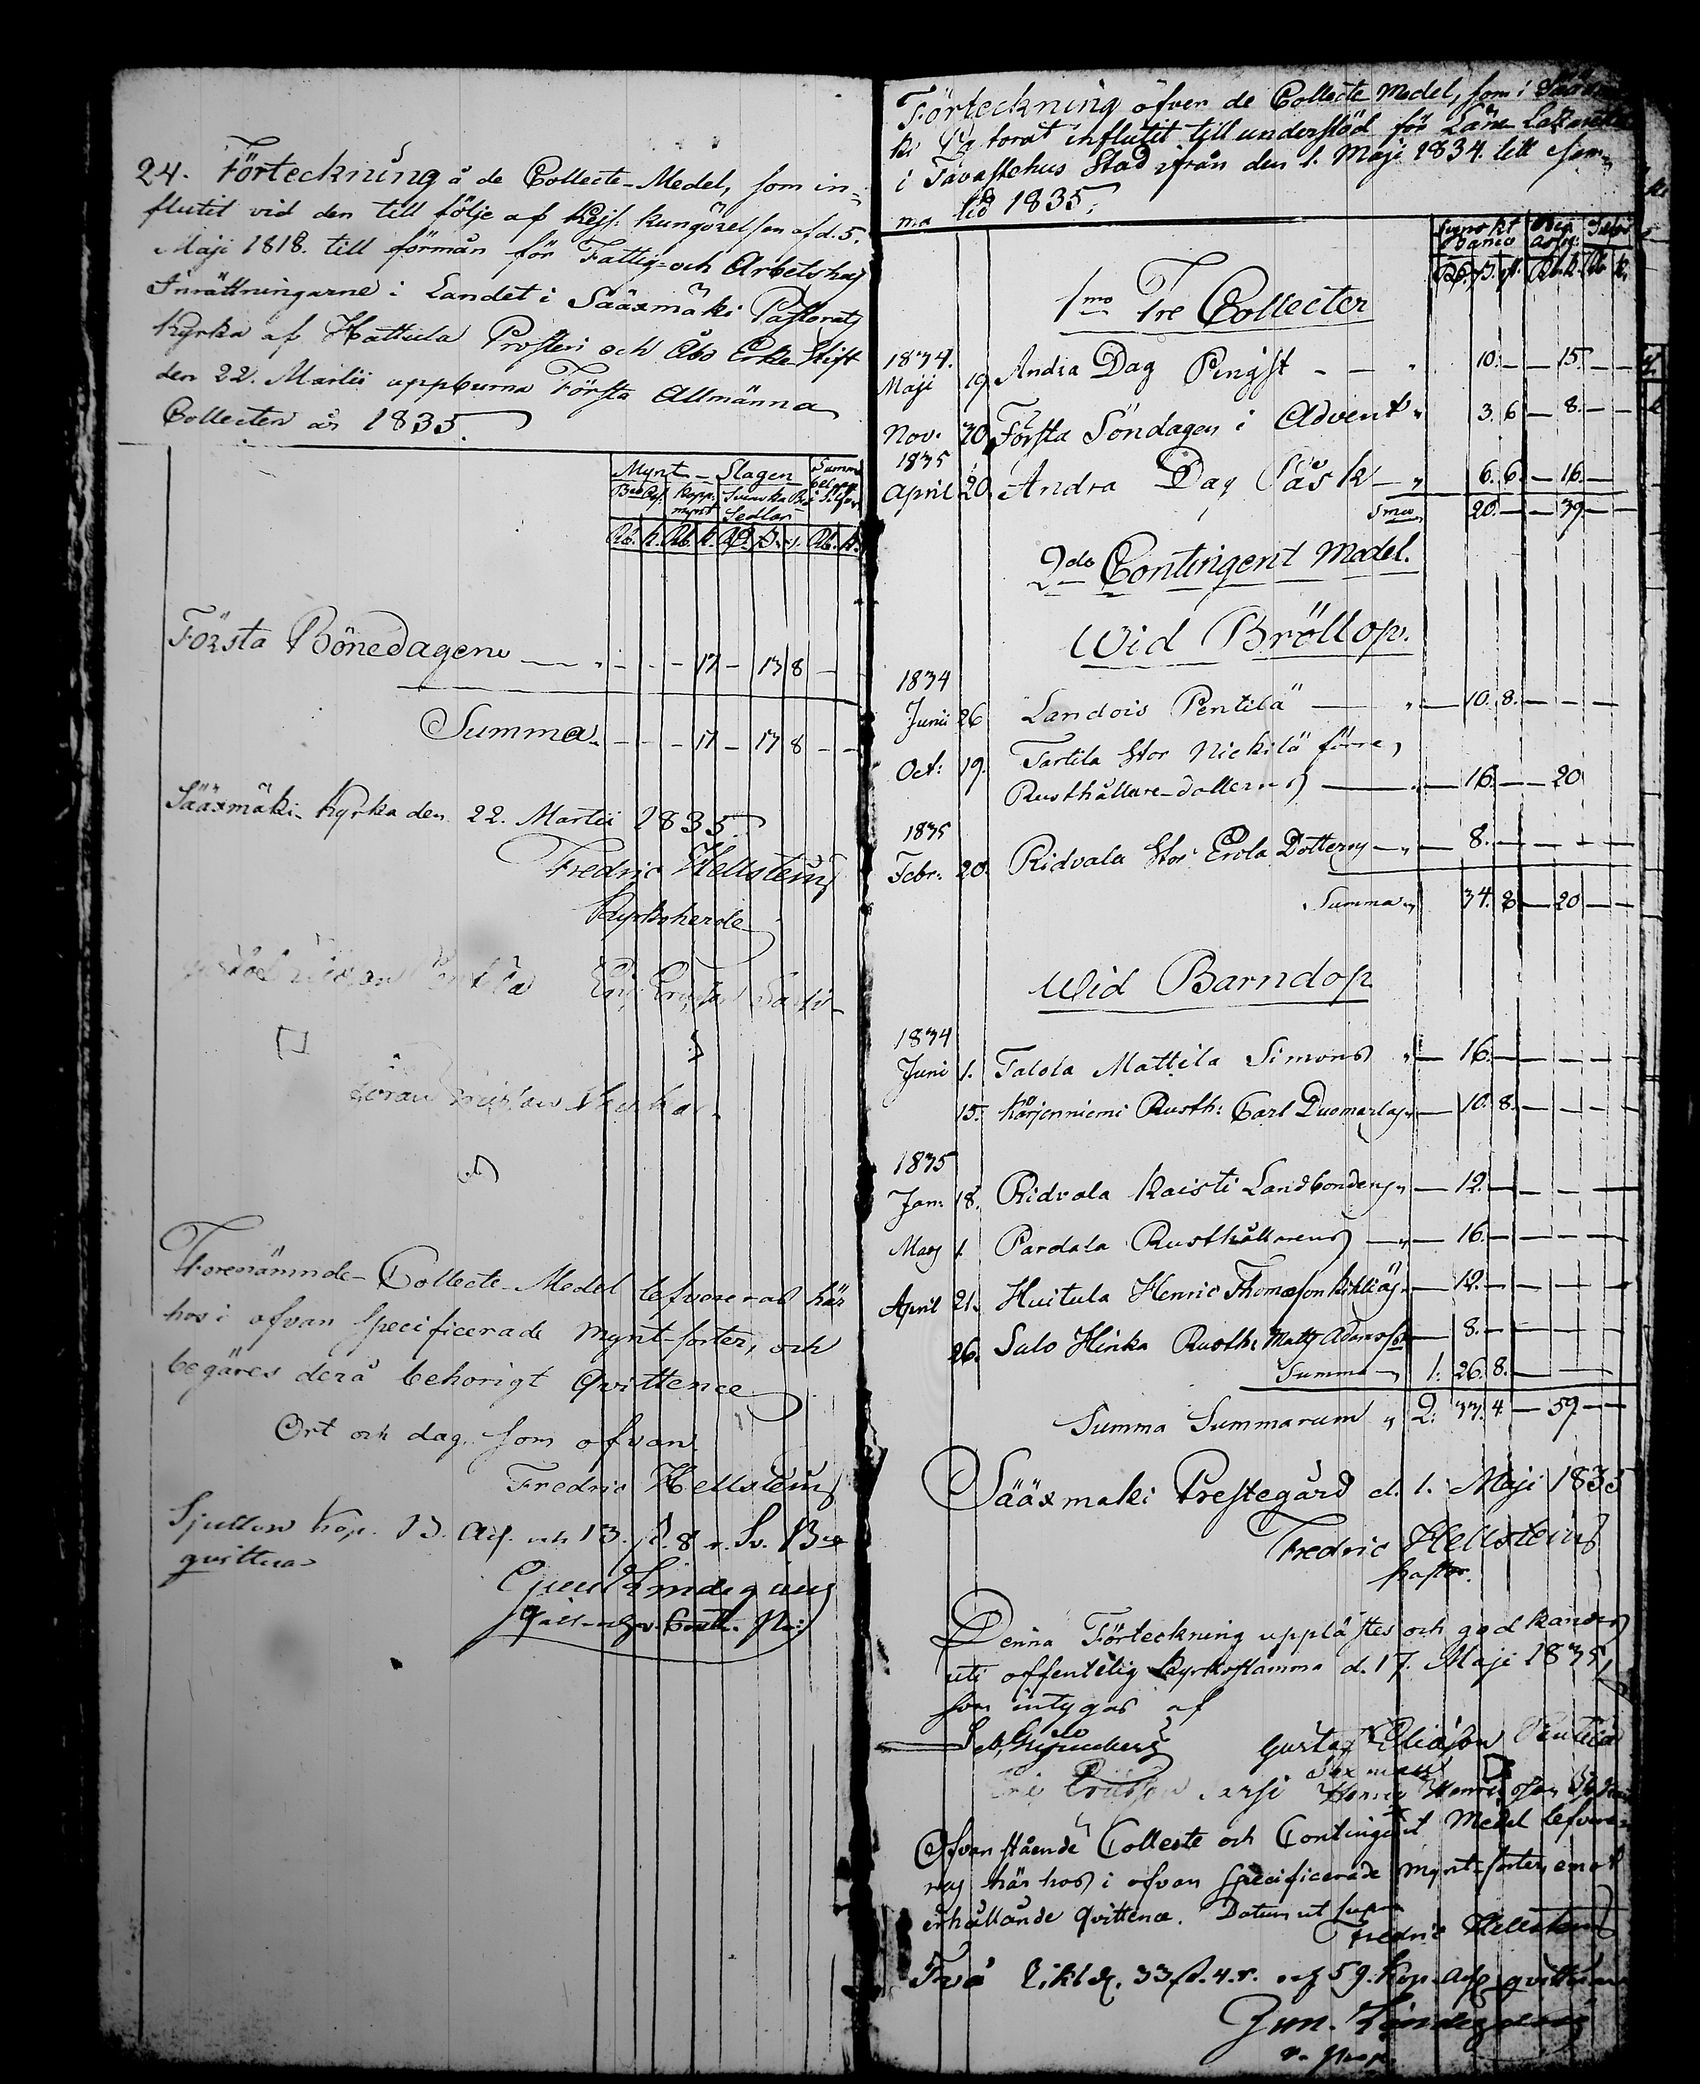 24. Förteckning å de Collecte-Medel, som in-
flutit vid den till följe af Kejs. kungörelsen af d. 5.
Maji 1818. till förmån för Fattig- och Arbetshus
Inrättningarne i Landet i Sääxmäki Pastorats
Kyrka af Hattula Prosteri och Åbo Erke-Stift
den 22. Martii uppburna Första Allmänna
Collecten år 1835.
Mynt - Slagen Summa
Bco Ass. Kopp. Svenska Bco i Silfver
mynt Sedlar
Rb. K. Rb. K. Rd. s. r. Rb. K.
Första Bönedagen - - - - 17 - 13 8 - -
Summa - - - - 17 - 13 8 - -
Sääxmäki Kyrka den 22. Martii 1835.
Fredric Hellstenius
Kyrkoherde
Förenämnde Collecte-Medel lefvereras här
hos i ofvan specificerade mynt-sorter, och
begäres derå behörigt qvittence
Ort och dag som ofvan
Fredric Hellstenius
Sjutton kop. B. Ass. och 13 s. 8 r. Sv. Bco
qvitteras
Förteckning öfver de Collecte Medel, som i Sääxmä-
ki Pastorat influtit till understöd för Läns Lazarettet
i Tavastehus Stad ifrån den 1. Maji 1834. till sam-
ma tid 1835.
1mo Tre Collecter
1834.
Maji 19. Andra Dag Pingst - - " 10. - - 15. - -
Nov. 30. Första Söndagen i Advent " 3. 6 - 8. - -
1835
April 20. Andra Dag Påsk - " 6. 6. - 16. -
Sma 20. - - 39 - -
2do Contingent Medel.
Wid Bröllop.
1834
Junii 26 Landois Pentilä - " - 10. 8. - - -
Oct: 19. Tarttila Stor Nickilä förre
Rusthållare-dotterns - " - 16. - - 20
1835
Febr. 20. Ridvala Stor Erola Dotterns - " - 8. - - - -
Summa " 34. 8 - 20 - -
Wid Barndop
1834
Juni 1. Talola Mattila Simons " - 16. - - - -
15. Kärjenniemi Rusth: Carl Duomarlas " - 10. 8. - - -
1835
Jan. 18. Ridvala Kaisti Landbondens " - 12. - - - -
Mars 1. Pardala Rusthållarens - " - 16. - - - -
April 21. Huitula Henric Thomasson Kikliäs " - 12. - - - -
26. Sulo Hinka Rusth: Matts Adamsson - 8. - - - -
Summa 1. 26. 8. - - -
Summa Summarum " 2. 33. 4 - 59. - -
Sääxmäki Prestegård d. 1. Maji 1835
Fredric Hellstenius
Pastor.
Denna Förteckning upplästes och godkändes
uti offentelig Kyrkostämma d. 17. Maji 1835,
som intygas af
Gustaf Eliasson Pentilä
Sexman
Ofvanstående Collecte och Contingent Medel lefvere-
ras här hos i ofvan specificerade mynt-sorter, emot
erhållande qvittence. Datum ut supra
Fredric Hellstenius
Två Riksd. 33 s. 4. r. och 59. Kop. Ass. qvitteras